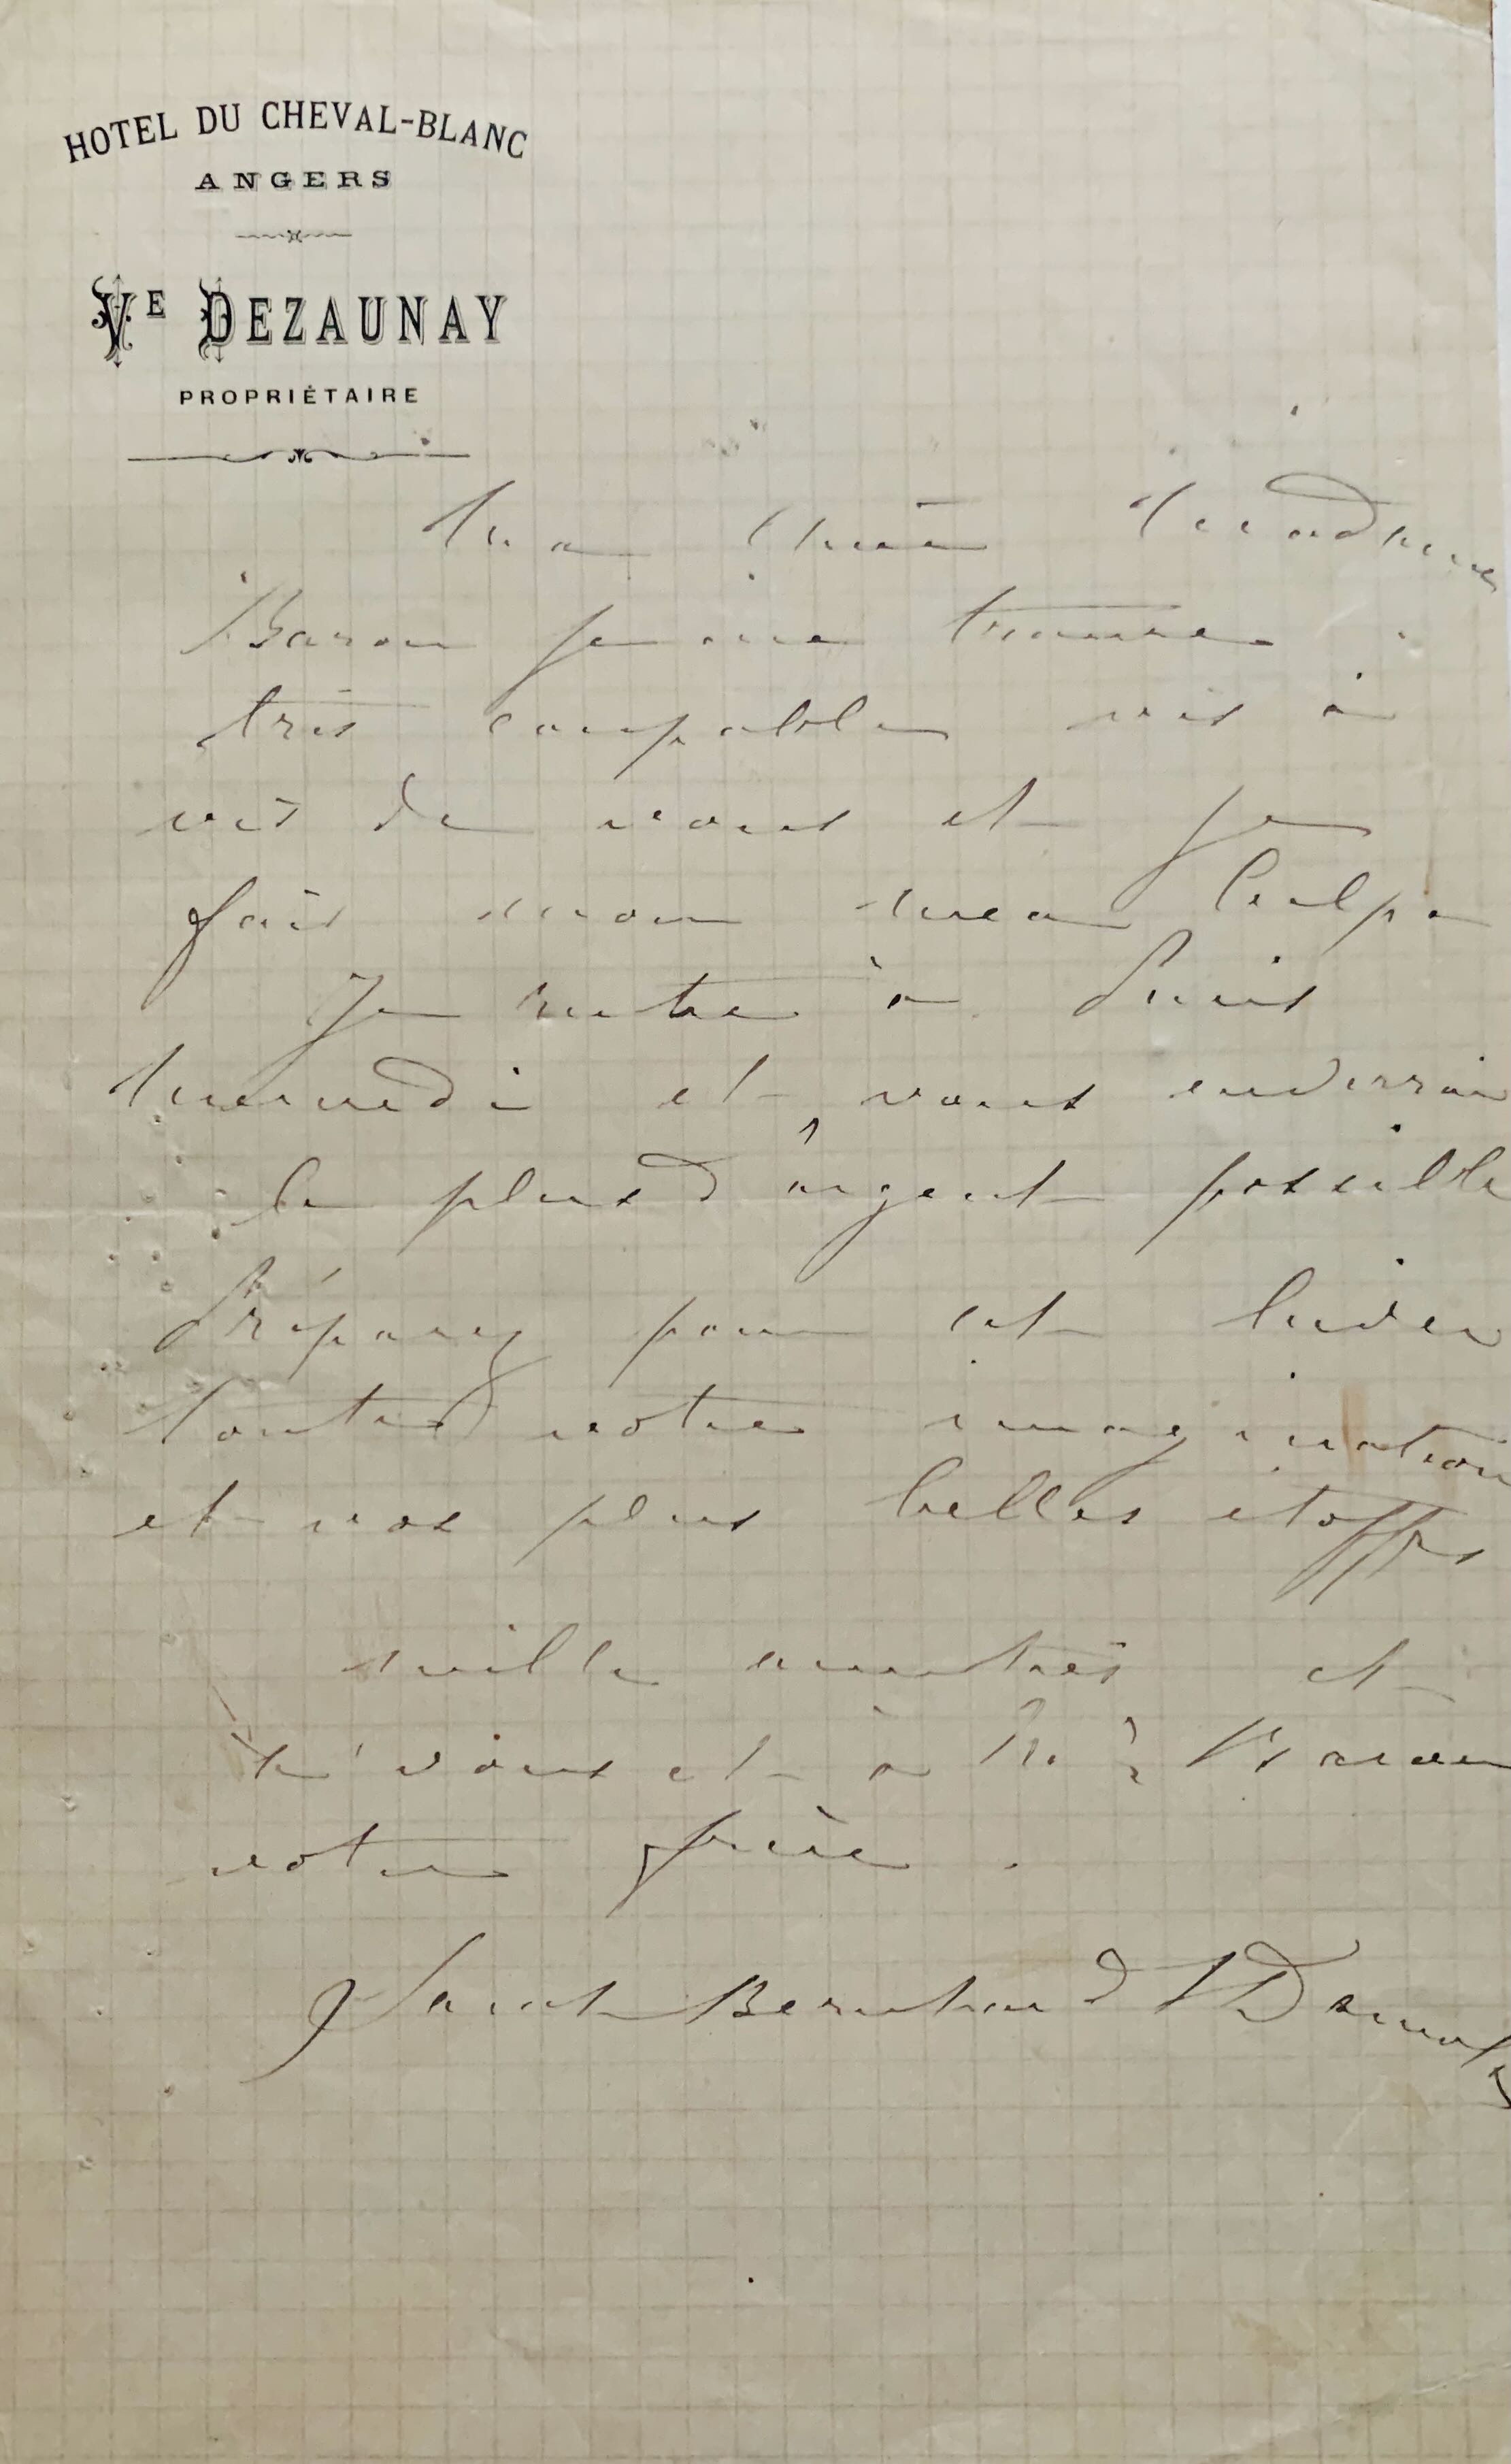 HOTEL DU CHEVAL-BLANC
ANGERS
VE DEZAUNAY
PROPRIÉTAIRE
Ma chère Madame
Baron je me trouve
très coupable vis à
vis de vous et je
fais mon mea culpa
Je rentre à Paris
et vous enverrai
le plus d'argent possible
Préparez pour cet hiver
toute votre imagination
et vos plus belles étoffes
mille amitiés et
à vous et à Baron
votre frère.
Sarah Bernhardt Damala